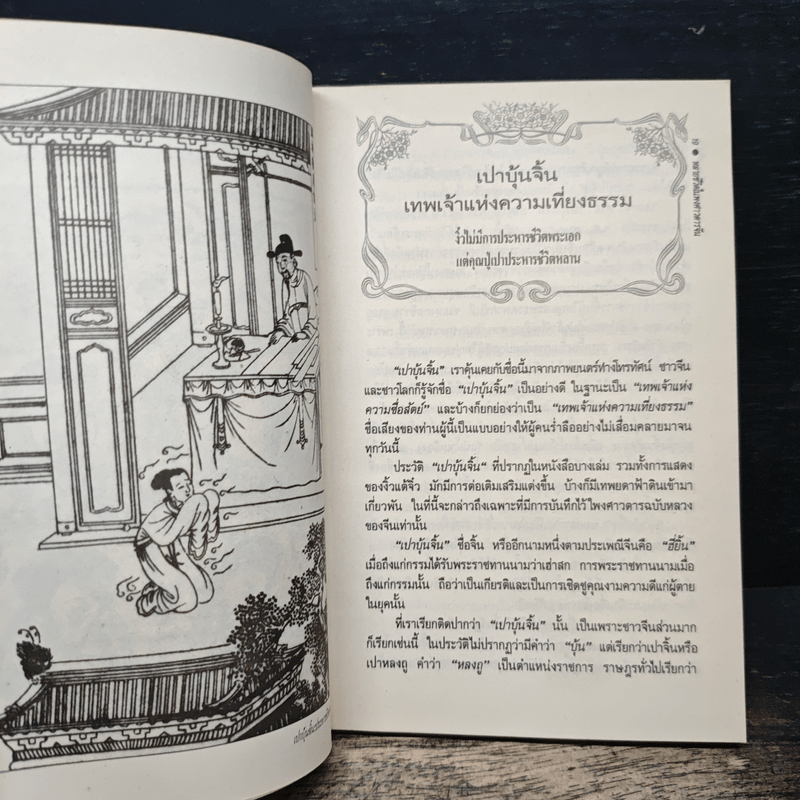 เปาบุ้นจิ้น
เทพเจ้าแห่งความเที่ยงธรรม
งิ้วไม่มีการประหารชีวิตพระเอก
แต่คุณปู่เปาประหารชีวิตหลาน
“เปาบุ้นจิ้น” เราคุ้นเคยกับชื่อนี้มาจากภาพยนตร์ทางโทรทัศน์ ชาวจีน
และชาวโลกก็รู้จักชื่อ “เปาบุ้นจิ้น” เป็นอย่างดี ในฐานะเป็น “เทพเจ้าแห่ง
ความซื่อสัตย์” และบ้างก็ยกย่องว่าเป็น “เทพเจ้าแห่งความเที่ยงธรรม”
ชื่อเสียงของท่านผู้นี้เป็นแบบอย่างให้ผู้คนร่ำลืออย่างไม่เสื่อมคลายมาจน
ทุกวันนี้
ประวัติ “เปาบุ้นจิ้น” ที่ปรากฏในหนังสือบางเล่ม รวมทั้งการแสดง
ของงิ้วแต้จิ๋ว มักมีการต่อเติมเสริมแต่งขึ้น บ้างก็มีเทพยดาฟ้าดินเข้ามา
เกี่ยวพัน ในที่นี้จะกล่าวถึงเฉพาะที่มีการบันทึกไว้ในพงศาวดารฉบับหลวง
ของจีนเท่านั้น
“เปาบุ้นจิ้น” ชื่อจิ้น หรืออีกนามหนึ่งตามประเพณีจีนคือ “ฮี่ยิ้น”
เมื่อถึงแก่กรรมได้รับพระราชทานนามว่าเฮ่าสก การพระราชทานนามเมื่อ
ถึงแก่กรรมนั้น ถือว่าเป็นเกียรติและเป็นการเชิดชูคุณงามความดีแก่ผู้ตาย
ในยุคนั้น
ที่เราเรียกติดปากว่า “เปาบุ้นจิ้น” นั้น เป็นเพราะชาวจีนส่วนมาก
ก็เรียกเช่นนี้ ในประวัติไม่ปรากฏว่ามีคำว่า “บุ้น” แต่เรียกว่าเปาจิ้นหรือ
เปาหลงถู คำว่า “หลงถู” เป็นตำแหน่งราชการ ราษฎรทั่วไปเรียกว่า